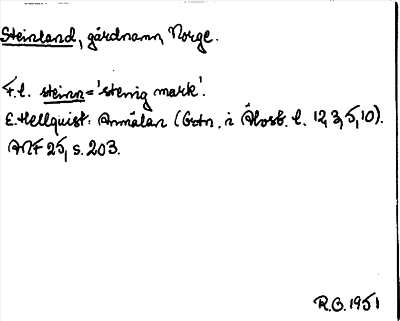 Steinland, gårdnamn, Norge.
F.l. steinn = 'stenig mark'.
E. Hellquist: Anmälan (Ortn. i Älvsb. l. 12, 3, 5, 10).
ANF 25, s. 203.
R.O. 1951